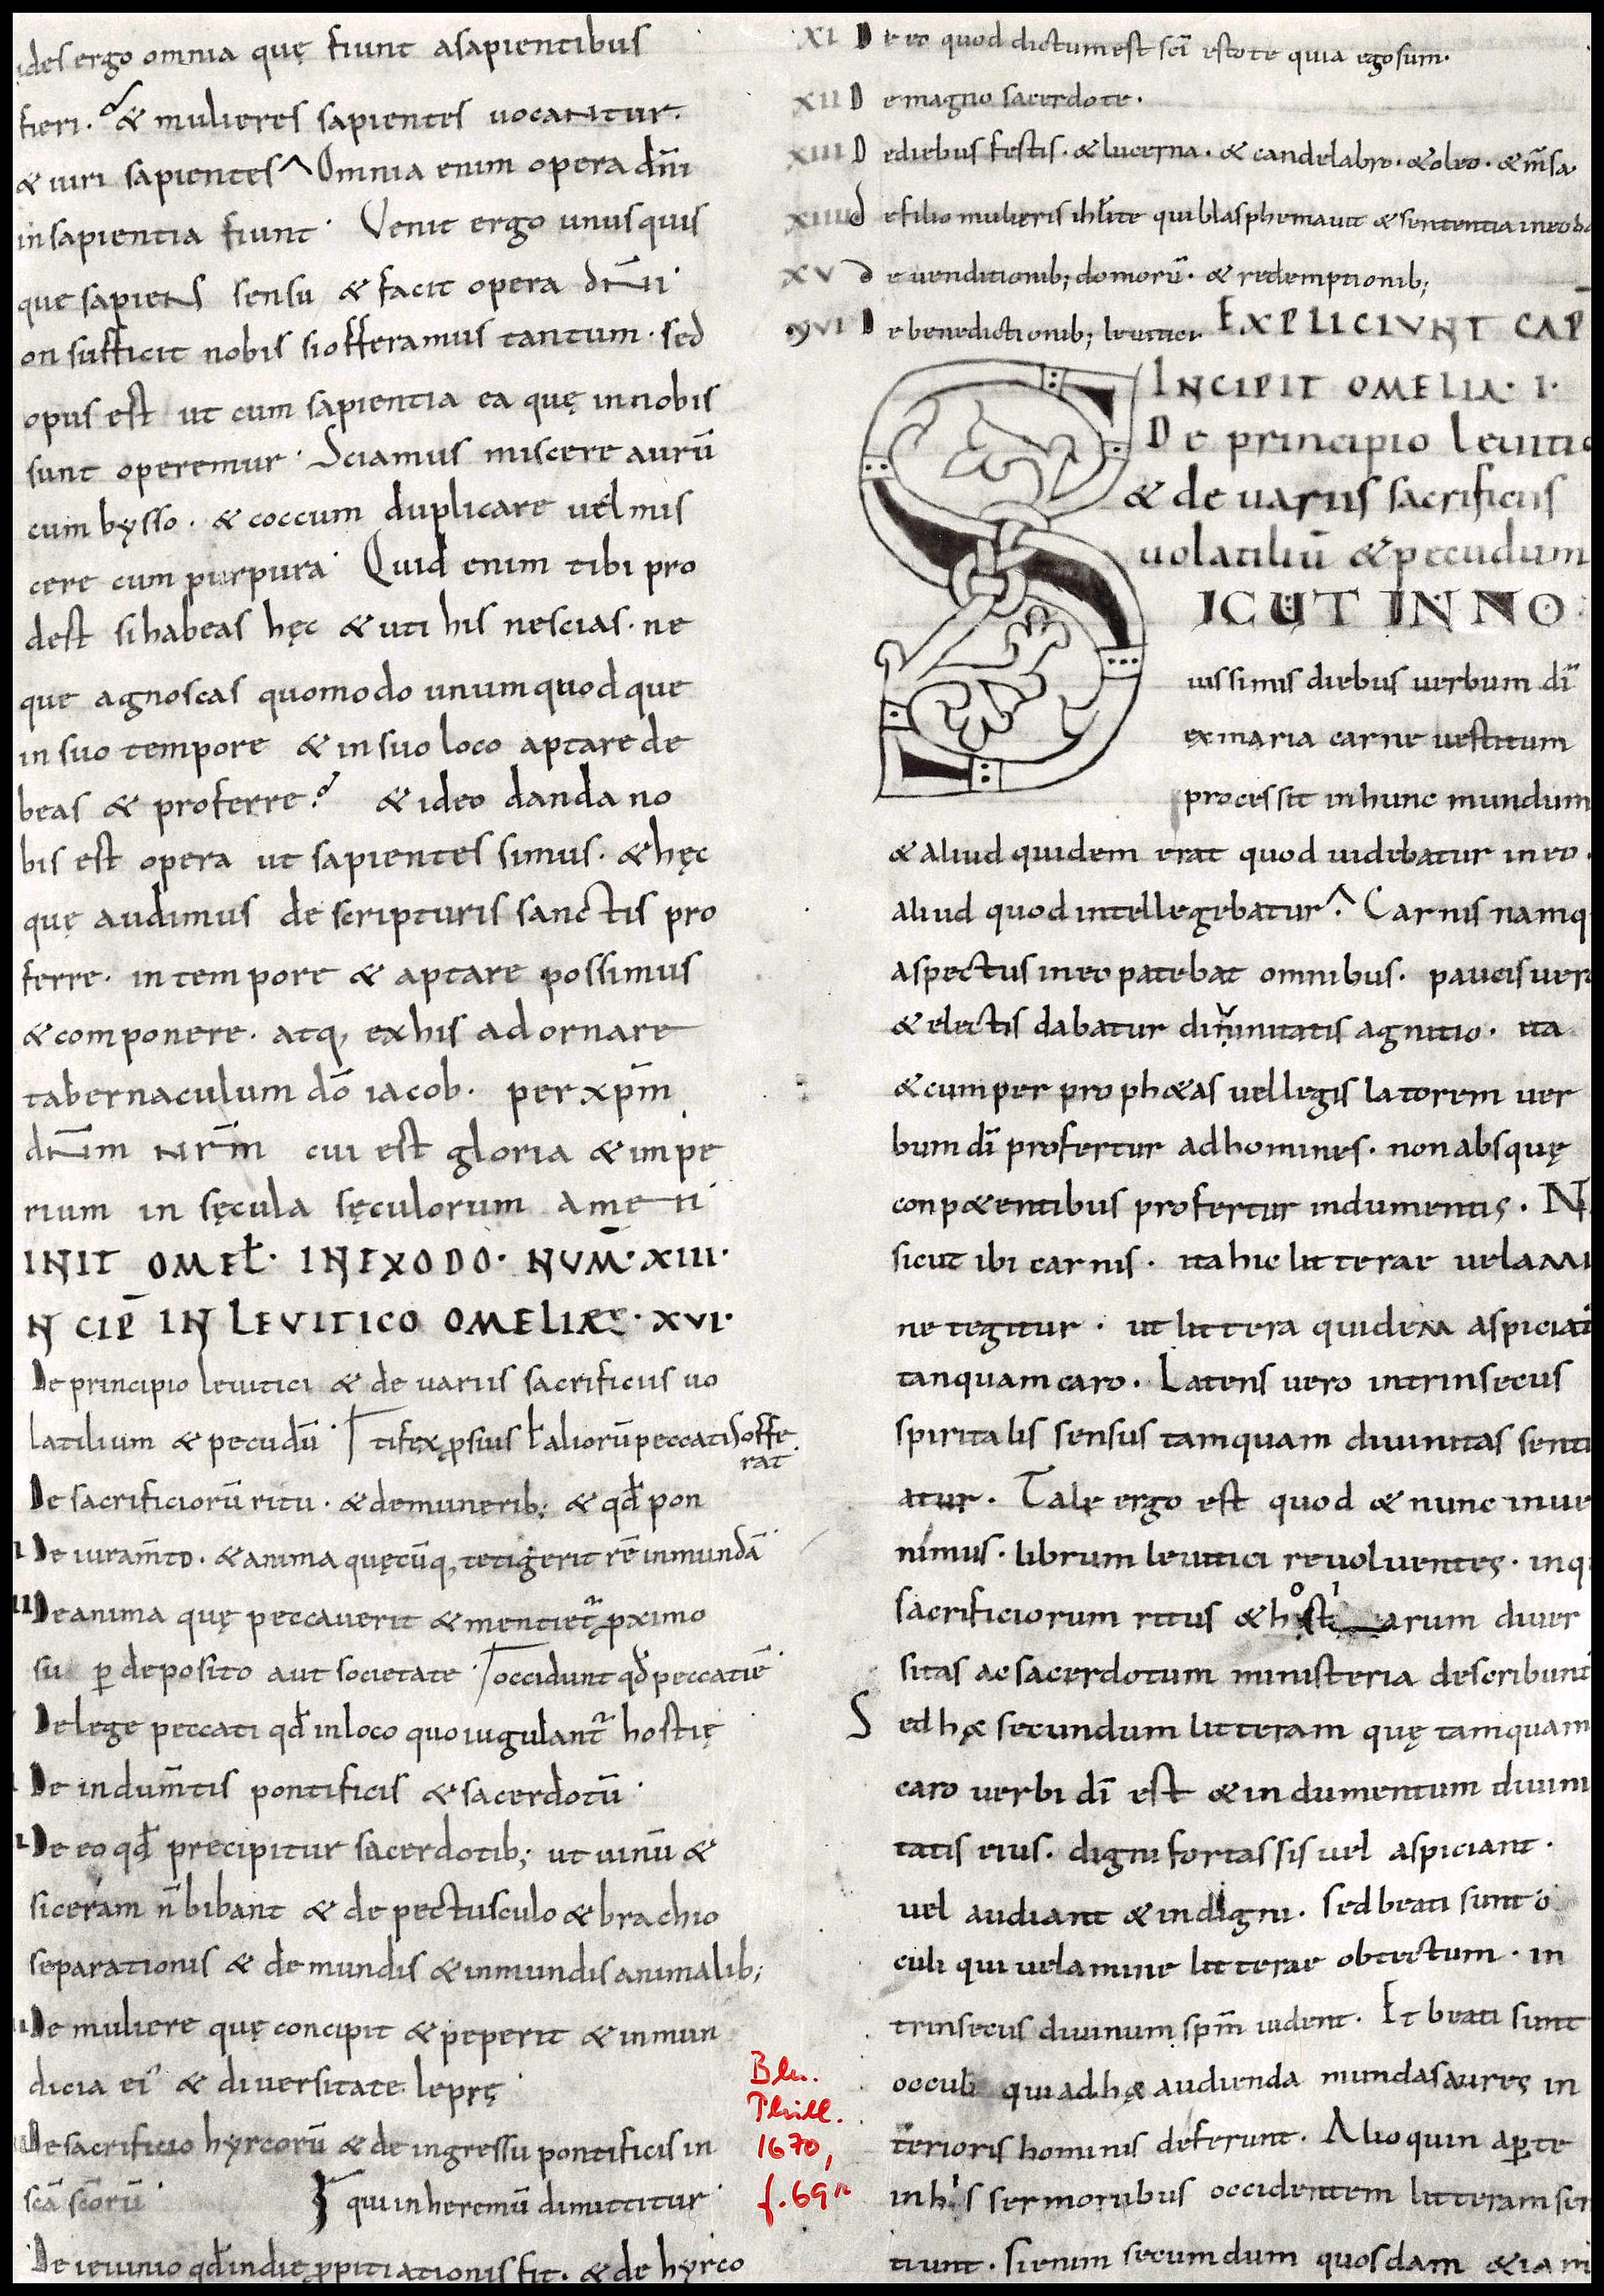 ides ergo omnia quę fiunt asapientibus
fieri. & mulieres sapientes uocantur.
& uiri sapientes Omnia enim opera dn̄i
insapientia fiunt· Venit ergo unusquis
que sapiens sensu & facit opera dn̄i·
on sufficit nobis siofferamus tantum· sed
opus est ut cum sapientia ea quę innobis
sunt operemur· Sciamus miscere aurū
cum bysso. & coccum duplicare uel mis
cere cum purpura· Quid enim tibi pro
dest sihabeas hęc & uti his nescias. ne
que agnoscas quomodo unumquodque
in suo tempore & insuo loco aptare de
beas & proferre? & ideo danda no
bis est opera ut sapientes simus. & hęc
quę audimus de scripturis sanctis pro
ferre. in tempore & aptare possimus
& componere. atq, exhis adornare
tabernaculum dō iacob. per xp̄m
dn̄m nr̄m cui est gloria & impe
rium in sęcula sęculorum amen·
INIT OMEL̄· INEXODO· NVM̄·XIII·
N CIP̄ IN LEVITICO OMELIAE·XVI·
De principio leuitici & de uariis sacrificiis uo
latilium & pecudū· tifex ꝓsiue ł aliorū peccatis offe
rat
De sacrificiorū ritu· & demunerib; & qđ pon
I De iuram̄to. & anima quęcūq, tetigerit rē inmundā
III De anima quę peccauerit & mentiet̄ ꝓximo
su ꝑ deposito aut societate· occidunt qđ peccatiē
De lege peccati qđ inloco quo iugulant̄ hostię
De indum̄tis pontificis & sacerdotū·
I De eo qđ precipitur sacerdotib; ut uinū &
siceram n̄ bibant & de pectusculo & brachio
separationis & de mundis & inmundis animalib;
II De muliere quę concipit & peperit & inmun
dicia ei' & diuersitate leprę·
De sacrificio hyrcorū & de ingressu pontificis in
scā scōrū· qui in heremū dimittitur·
De ieiunio qđ indie ꝓpitiationis fit. & de hyrco
XI De eo quod dictumest scī estote quia egosum.
XII De magno sacerdote.
XIII De diebus festis. & lucerna. & candelabro. & oleo. & m̄sa.
XIIII de filio mulieris ihr̄lite quiblasphemauit & sententia ineo
XV de uenditionib; domorū. & redemptionib;
XVI De benedictionib; leuitici EXPLICIVNT CAP̄
INCIPIT OMELIA· I·
De principio leuitic
& de uariis sacrificiis
uolatiliū & pecudum
SICUT IN NO
uissimis diebus uerbum dī
exmaria carne uestitum
processit inhunc mundum
& aliud quidem erat quod uidebatur ineo.
aliud quod intellegebatur. Carnis namq
aspectus ineo patebat omnibus. paucis uero
& electis dabatur diuinitatis agnitio. ita
& cumper proph&as uellegis latorem uer
bum dī profertur adhomines. nonabsquę
conp&entibus profertur indumentis. N
sicut ibi carnis. itahic litterae uelami
ne tegitur. ut littera quidem aspiciat
tanquam caro. Latens uero intrinsecus
spiritalis sensus tamquam diuinitas senti
atur. Tale ergo est quod & nunc inue
nimus. librum leuitici reuoluentes. inq
sacrificiorum ritus & hostiarum diuer
sitas ac sacerdotum ministeria describunt
Sed hęc secundum litteram quę tamquam
caro uerbi dī est & indumentum diuini
tatis eius. digni fortassis uel aspiciant.
uel audiant & indigni. Sed beati sunt o
culi qui uelamine litterae obtectum. in
trinsecus diuinum sp̄m uident. Et beati sunt
occuli qui ad hęc audienda mundas aures in
terioris hominis deferunt. Alioquin aꝑte
inhis sermonibus occidentem litteram sen
tiunt. Sienim secundum quosdam & iam
Bln.
Phill.
1670,
f.69r